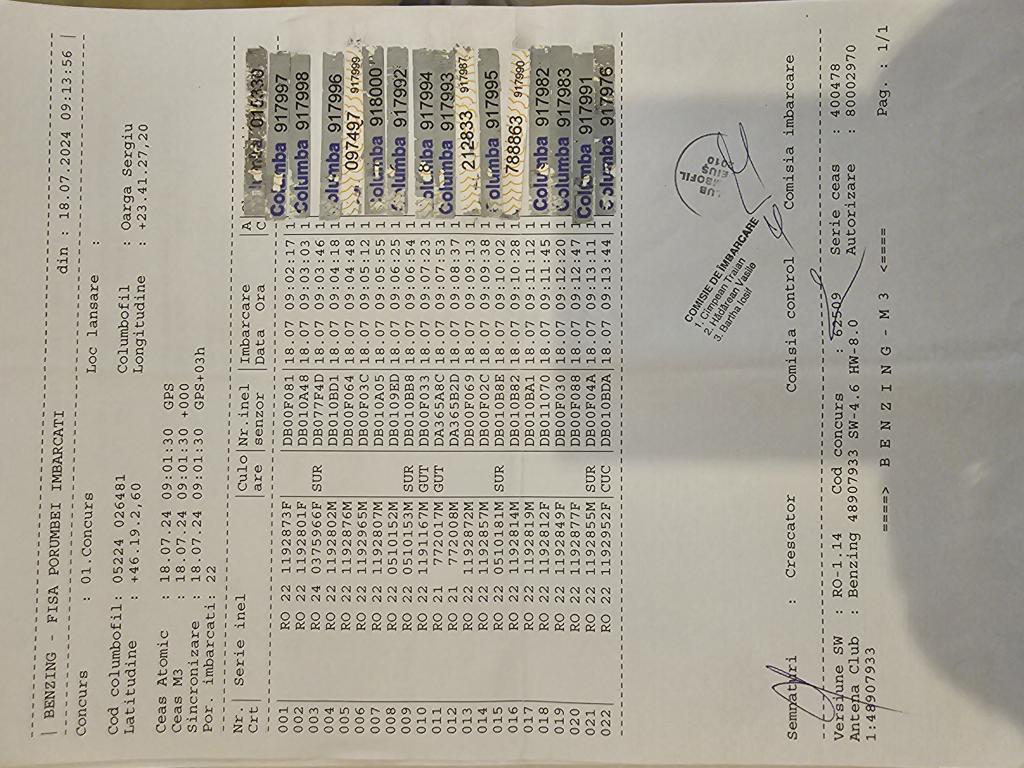 | BENZING - FISA PORUMBEI IMBARCATI din : 18.07.2024 09:13:56 |
Concurs : 01.Concurs Loc lansare :
Cod columbofil: 05224 026481 Columbofil : Oarga Sergiu
Latitudine : +46.19.2,60 Longitudine : +23.41.27,20
Ceas Atomic : 18.07.24 09:01:30 GPS
Ceas M3 : 18.07.24 09:01:30 +000
Sincronizare : 18.07.24 09:01:30 GPS+03h
Por. imbarcati: 22
Nr.| Serie inel |Culo|Nr.inel |Imbarcare |A
Crt| |are |senzor |Data Ora |C
001 | RO 22 1192873F | |DB00F081 |18.07 09:02:17|1 Columba 917997
002 | RO 22 1192801F | |DB010A48 |18.07 09:03:03|1 Columba 917998
003 | RO 24 0375966F |SUR |DB077F4D |18.07 09:03:46|1
004 | RO 22 1192802M | |DB010BD1 |18.07 09:04:18|1 Columba 917996
005 | RO 22 1192876M | |DB00F064 |18.07 09:04:48|1 097497 917999
006 | RO 22 1192965M | |DB00F03C |18.07 09:05:12|1 Columba 918000
007 | RO 22 1192807M | |DB010A05 |18.07 09:05:55|1 Columba 917992
008 | RO 22 0510152M | |DB0109ED |18.07 09:06:25|1
009 | RO 22 0510153M |SUR |DB010BB8 |18.07 09:06:54|1 917994
010 | RO 22 1191167M |GUT |DB00F033 |18.07 09:07:23|1 Columba 917993
011 | RO 21 772017M |GUT |DA365A8C |18.07 09:07:53|1 212833 917987
012 | RO 21 772008M | |DA365B2D |18.07 09:08:37|1 Columba 917995
013 | RO 22 1192872M | |DB00F069 |18.07 09:09:13|1 788863 917990
014 | RO 22 1192857M | |DB00F02C |18.07 09:09:38|1 Columba 917982
015 | RO 22 0510181M |SUR |DB010BBE |18.07 09:10:02|1 Columba 917983
016 | RO 22 1192814M | |DB010B82 |18.07 09:10:28|1 Columba 917991
017 | RO 22 1192819M | |DB010BA1 |18.07 09:11:12|1 Columba 917976
018 | RO 22 1192812F | |DB011070 |18.07 09:11:45|1
019 | RO 22 1192849F | |DB00F030 |18.07 09:12:20|1
020 | RO 22 1192877F | |DB00F088 |18.07 09:12:47|1
021 | RO 22 1192855M |SUR |DB00F04A |18.07 09:13:11|1
022 | RO 22 1192952F |CUC |DB010BDA |18.07 09:13:44|1
COMISIE DE IMBARCARE
1. Cimpean Traian
2. Hădărean Vasile
3. Bartha Iosif
2010
Semnaturi : Crescator Comisia control Comisia imbarcare
Versiune SW : Ro-1.14 Cod concurs : 62509 Serie ceas : 400478
Antena Club : Benzing 48907933 SW-4.6 HW-8.0 Autorizare : 80002970
1:48907933
====> B E N Z I N G - M 3 <==== Pag. : 1/1